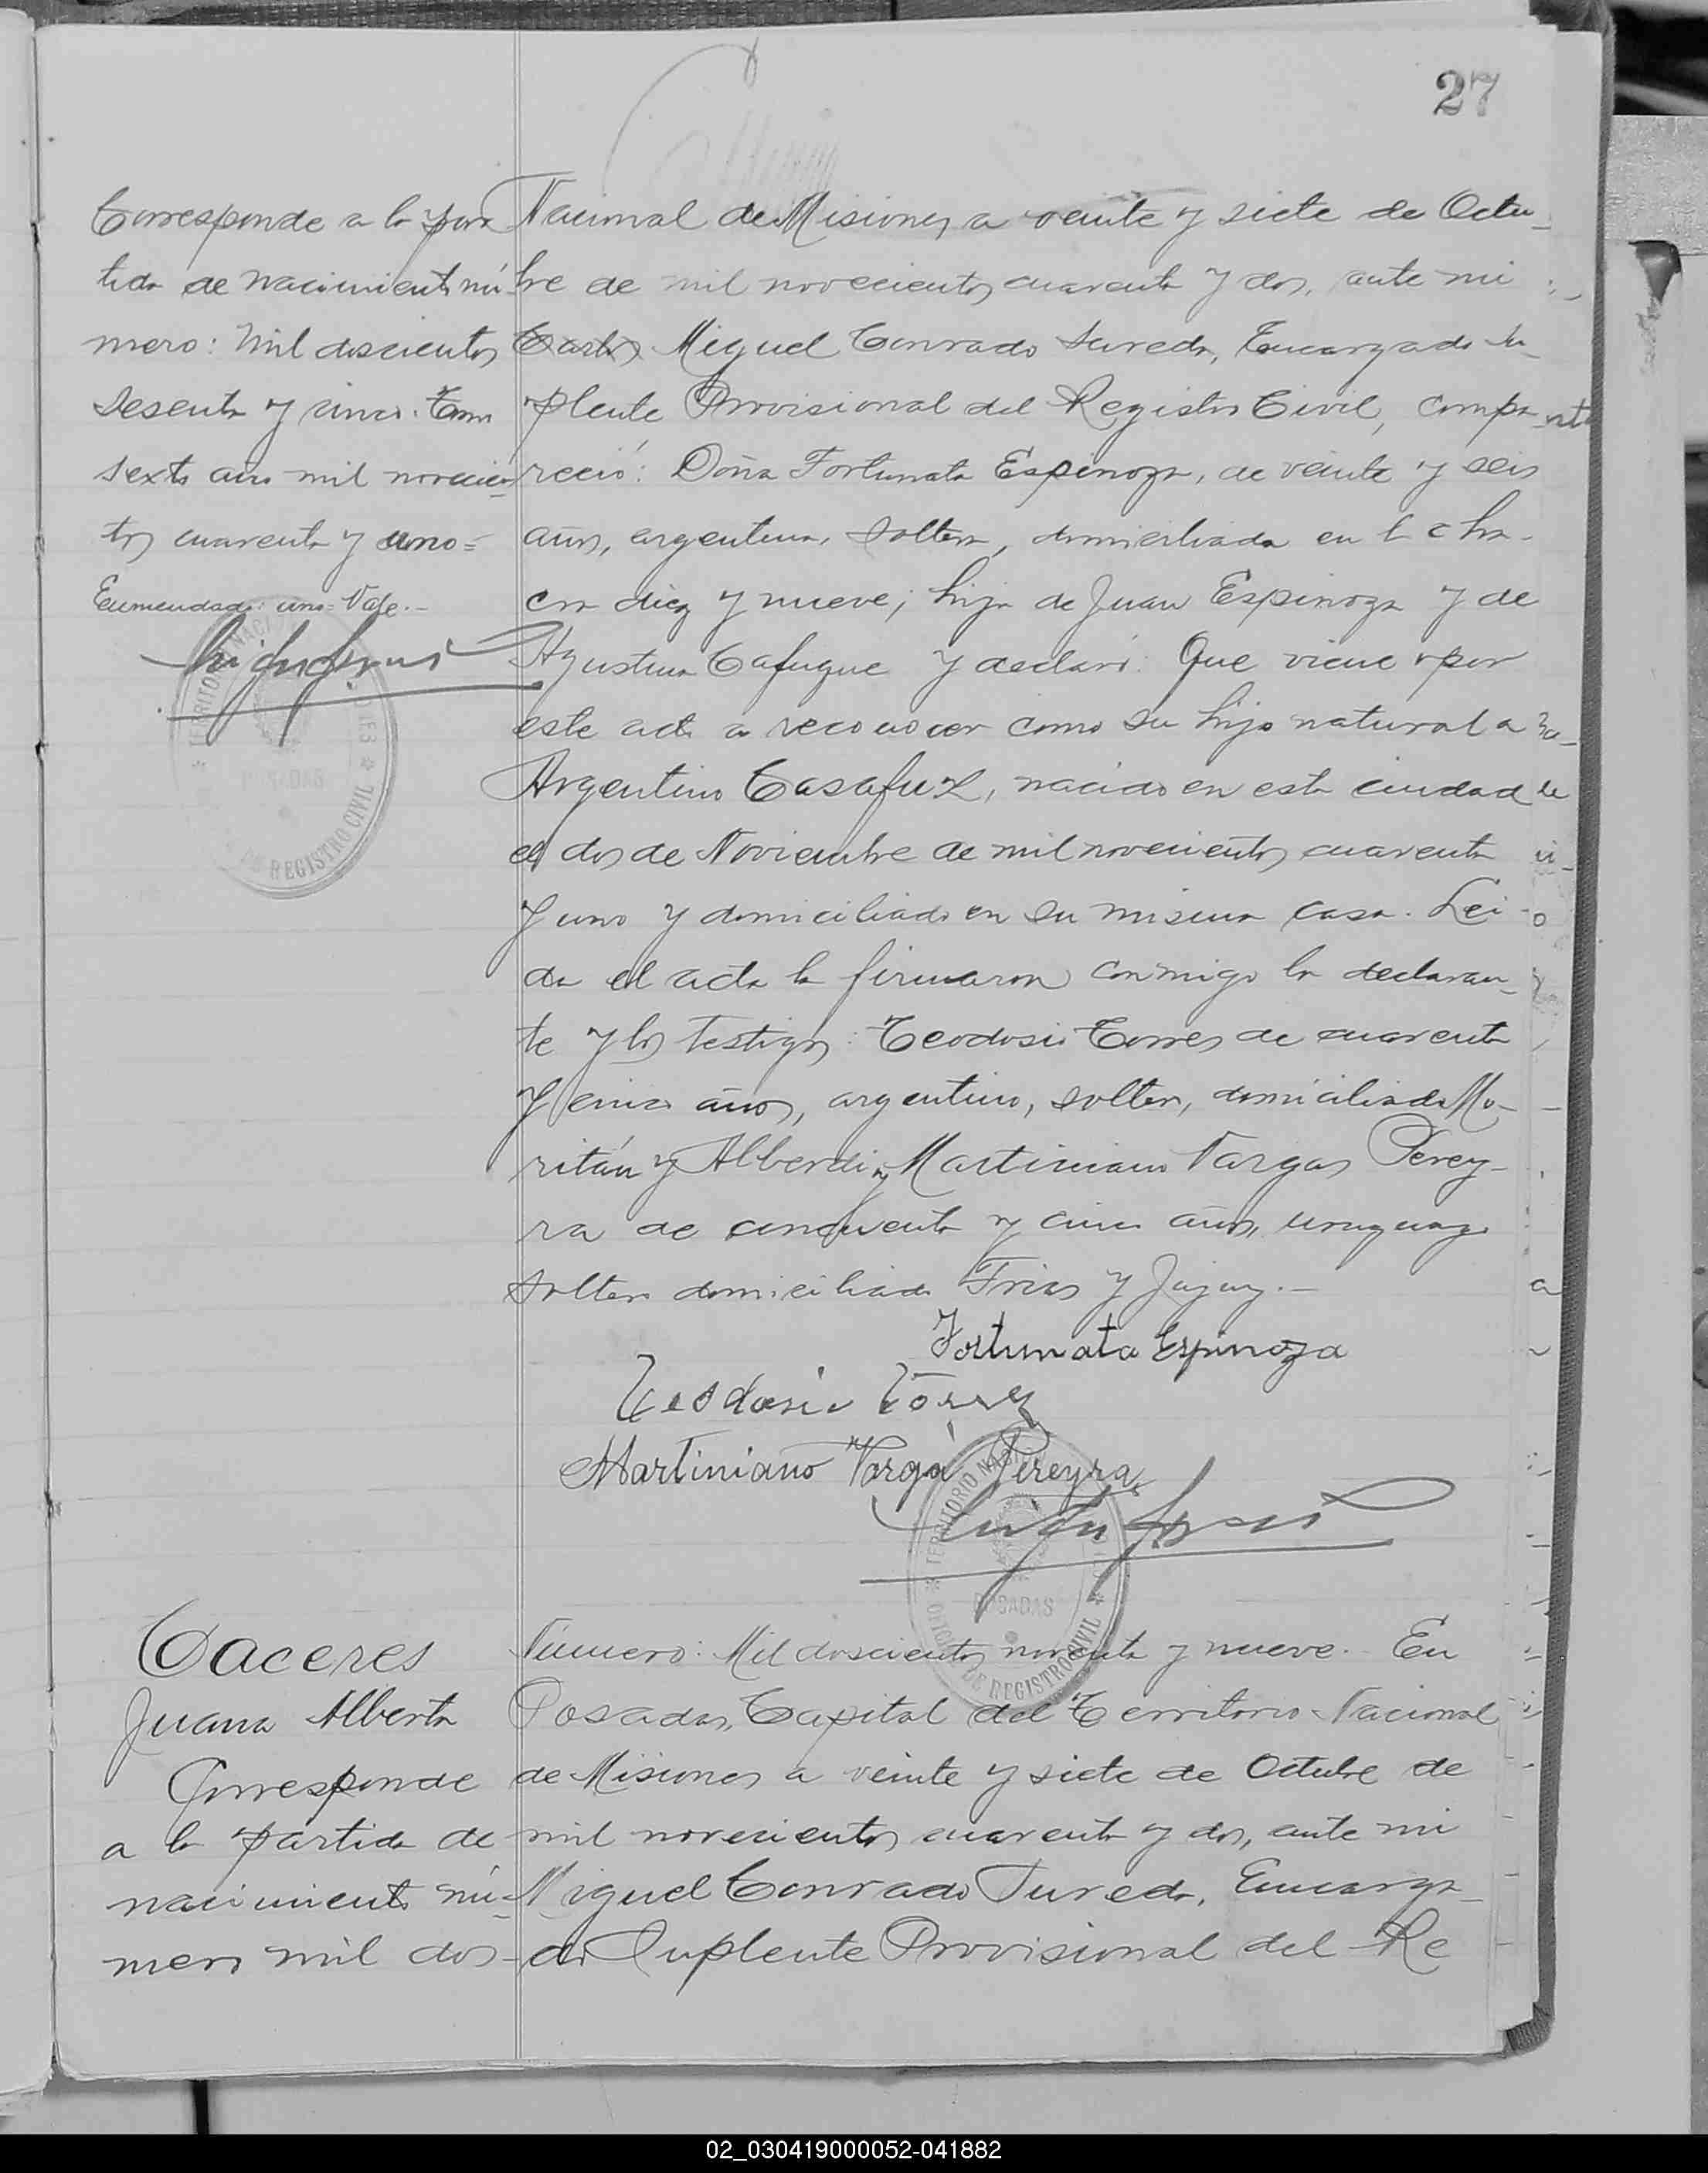 27
Corresponde a la par
tida de nacimiento nú
mero: mil doscientos
sesenta y cinco. Tomo
sexto año mil novecien
tos cuarenta y uno=
Enmendado: uno=Vale.-
TERRITORIO NACIONAL
POSADAS
REGISTRO CIVIL
Nacional de Misiones a veinte y siete de Octu_
bre de mil novecientos cuarenta y dos, ante mi
Carlos Miguel Conrado Sureda, Encargado Su_
plente Provisional del Registro Civil, compa_
reció: Doña Fortunata Espinoza, de veinte y seis
años, argentina, soltera, domiciliada en la cha-
cra diez y nueve; hija de Juan Espinoza y de
Agustina Cafugue y declaró: Que viene por
este acto a reconocer como su hijo natural a
Argentino Casafuz, nacido en esta ciudad
el dos de Noviembre de mil novecientos cuarenta
y uno y domiciliado en su misma casa. Lei-
da el acta la firmaron conmigo la declaran_
te y los testigos: Teodosio Torres de cuarenta
y cinco años, argentino, soltero, domiciliado Mo-
ritán y Alberdi y Martiniano Vargas Perey-
ra de cincuenta y cinco años, uruguayo
soltero domiciliado Frias y Jujuy.-
Fortunata Espinoza
Teodosio Torres
Martiniano Varga Pereyra
TERRITORIO NACIONAL
POSADAS
OFICINA DE REGISTRO CIVIL
Caceres
Juana Alberta
Corresponde
a la partida de
nacimiento nú-
mero mil dos-
Número: Mil doscientos noventa y nueve. En
Posadas, Capital del Territorio Nacional
de Misiones a veinte y siete de Octubre de
mil novecientos cuarenta y dos, ante mi
Miguel Conrado Sureda, Encarga_
do Suplente Provisional del Re
02_030419000052-041882